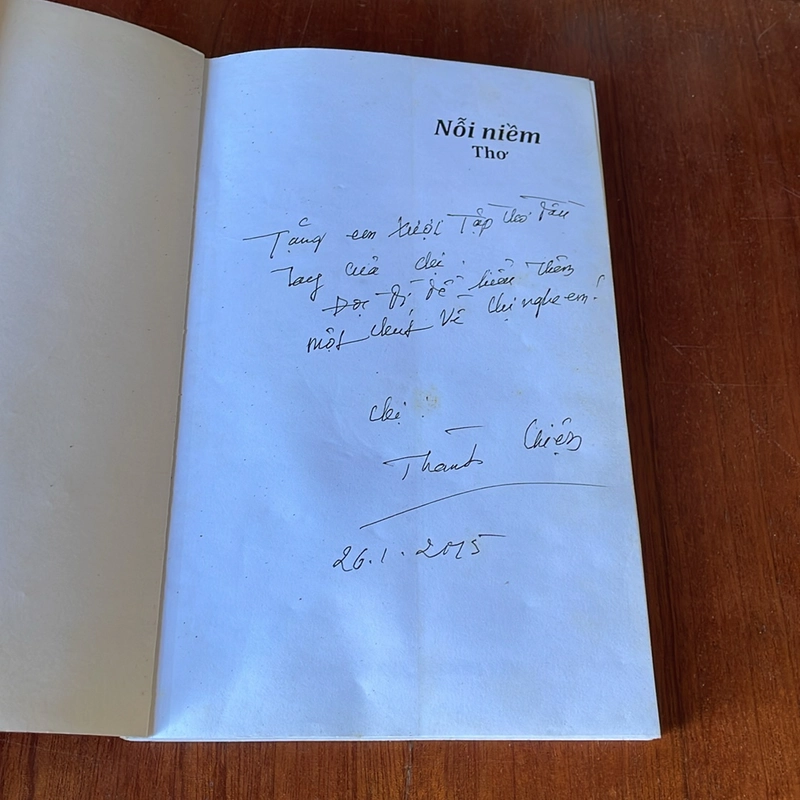 Nỗi niềm
Thơ
Tặng em Tập thơ đầu
Tay của chị.
Đọc để hiểu thêm
một chút về chị nghe em!
chị:
Thanh Chiện
26.1.2015